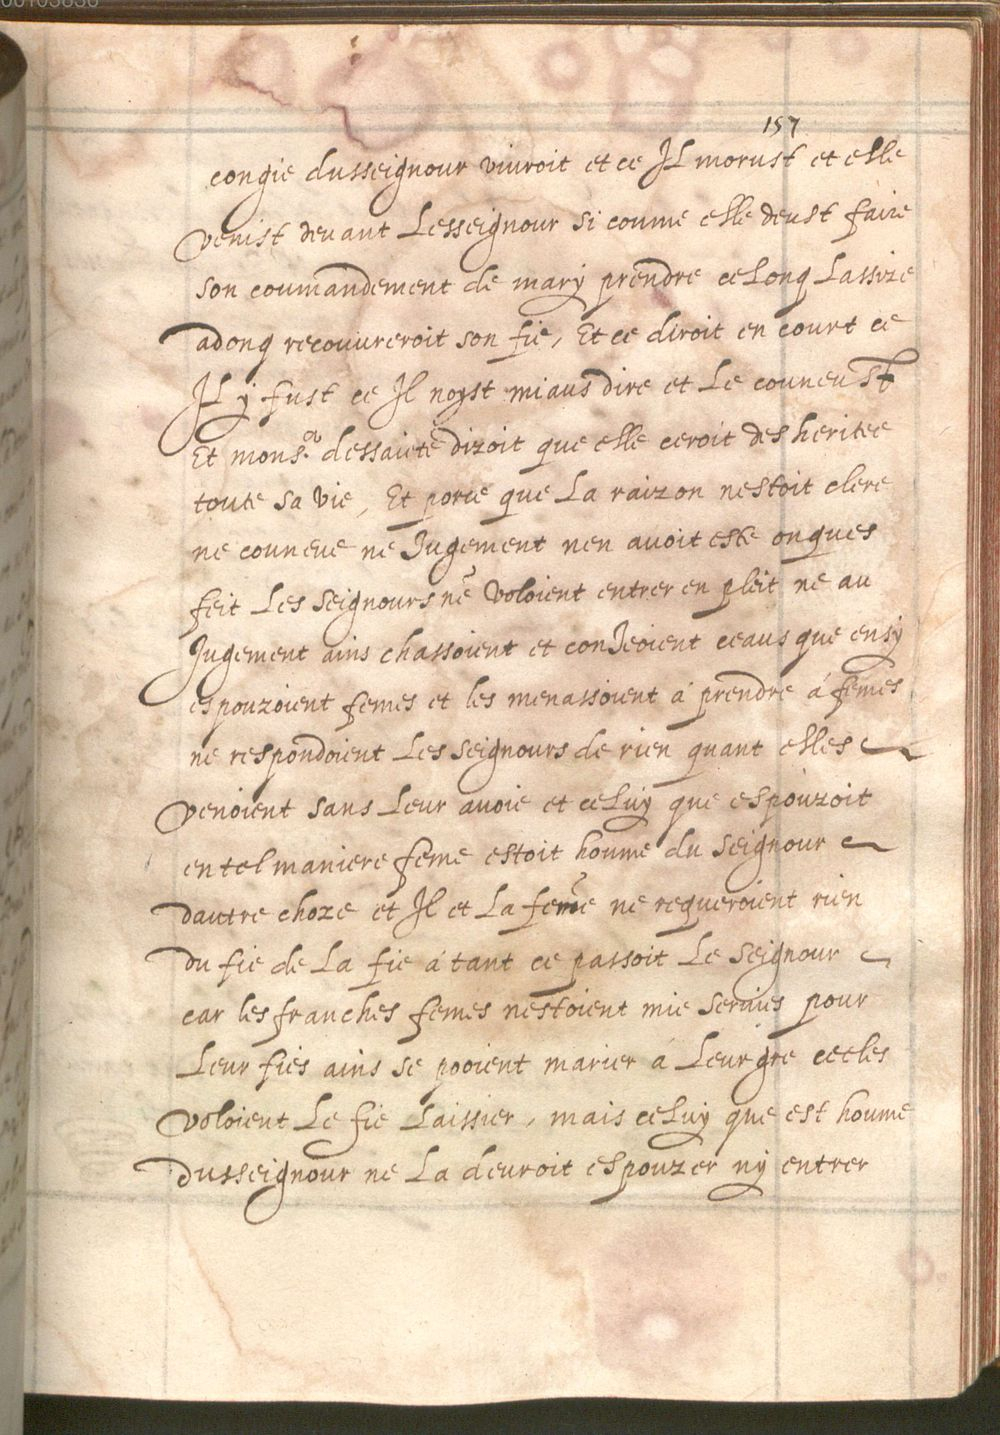 157
congie dusseignour viuroit et ce Il morust et elle
venist deuant Lesseignour si coume elle deust faire
son coumandement de mary prendre celonq Lassize
adonq recouureroit son fie, Et ce diroit en court ce
Il y fust ce Il noyst miaus dire et Le couneust
Et mons.r dessaiete dizoit que elle ceroit desheritee
toute sa vie, Et porce que La raizon nestoit clere
ne couneue ne Jugement nen auoit este onques
feit Les seignours ne voloient entrer en pleit ne au
Jugement ains chassoient et conJeoient ceaus que ensy
espouzoient femes et les menassoient á prendre á femes
ne respondoient Les seignours de rien quant elles
venoient sans Leur auoie et celuy que espouzoit
en tel maniere feme estoit houme du seignour
dautre choze et Il et La feme ne requeroient rien
du fie de La fie á tant ce passoit Le seignour
car les franches femes nestoient mie seruies pour
Leur fies ains se pooient marier á Leur gre ce eles
voloient Le fie Laissier, mais celuy que est houme
dusseignour ne La deuroit espouzer ny entrer